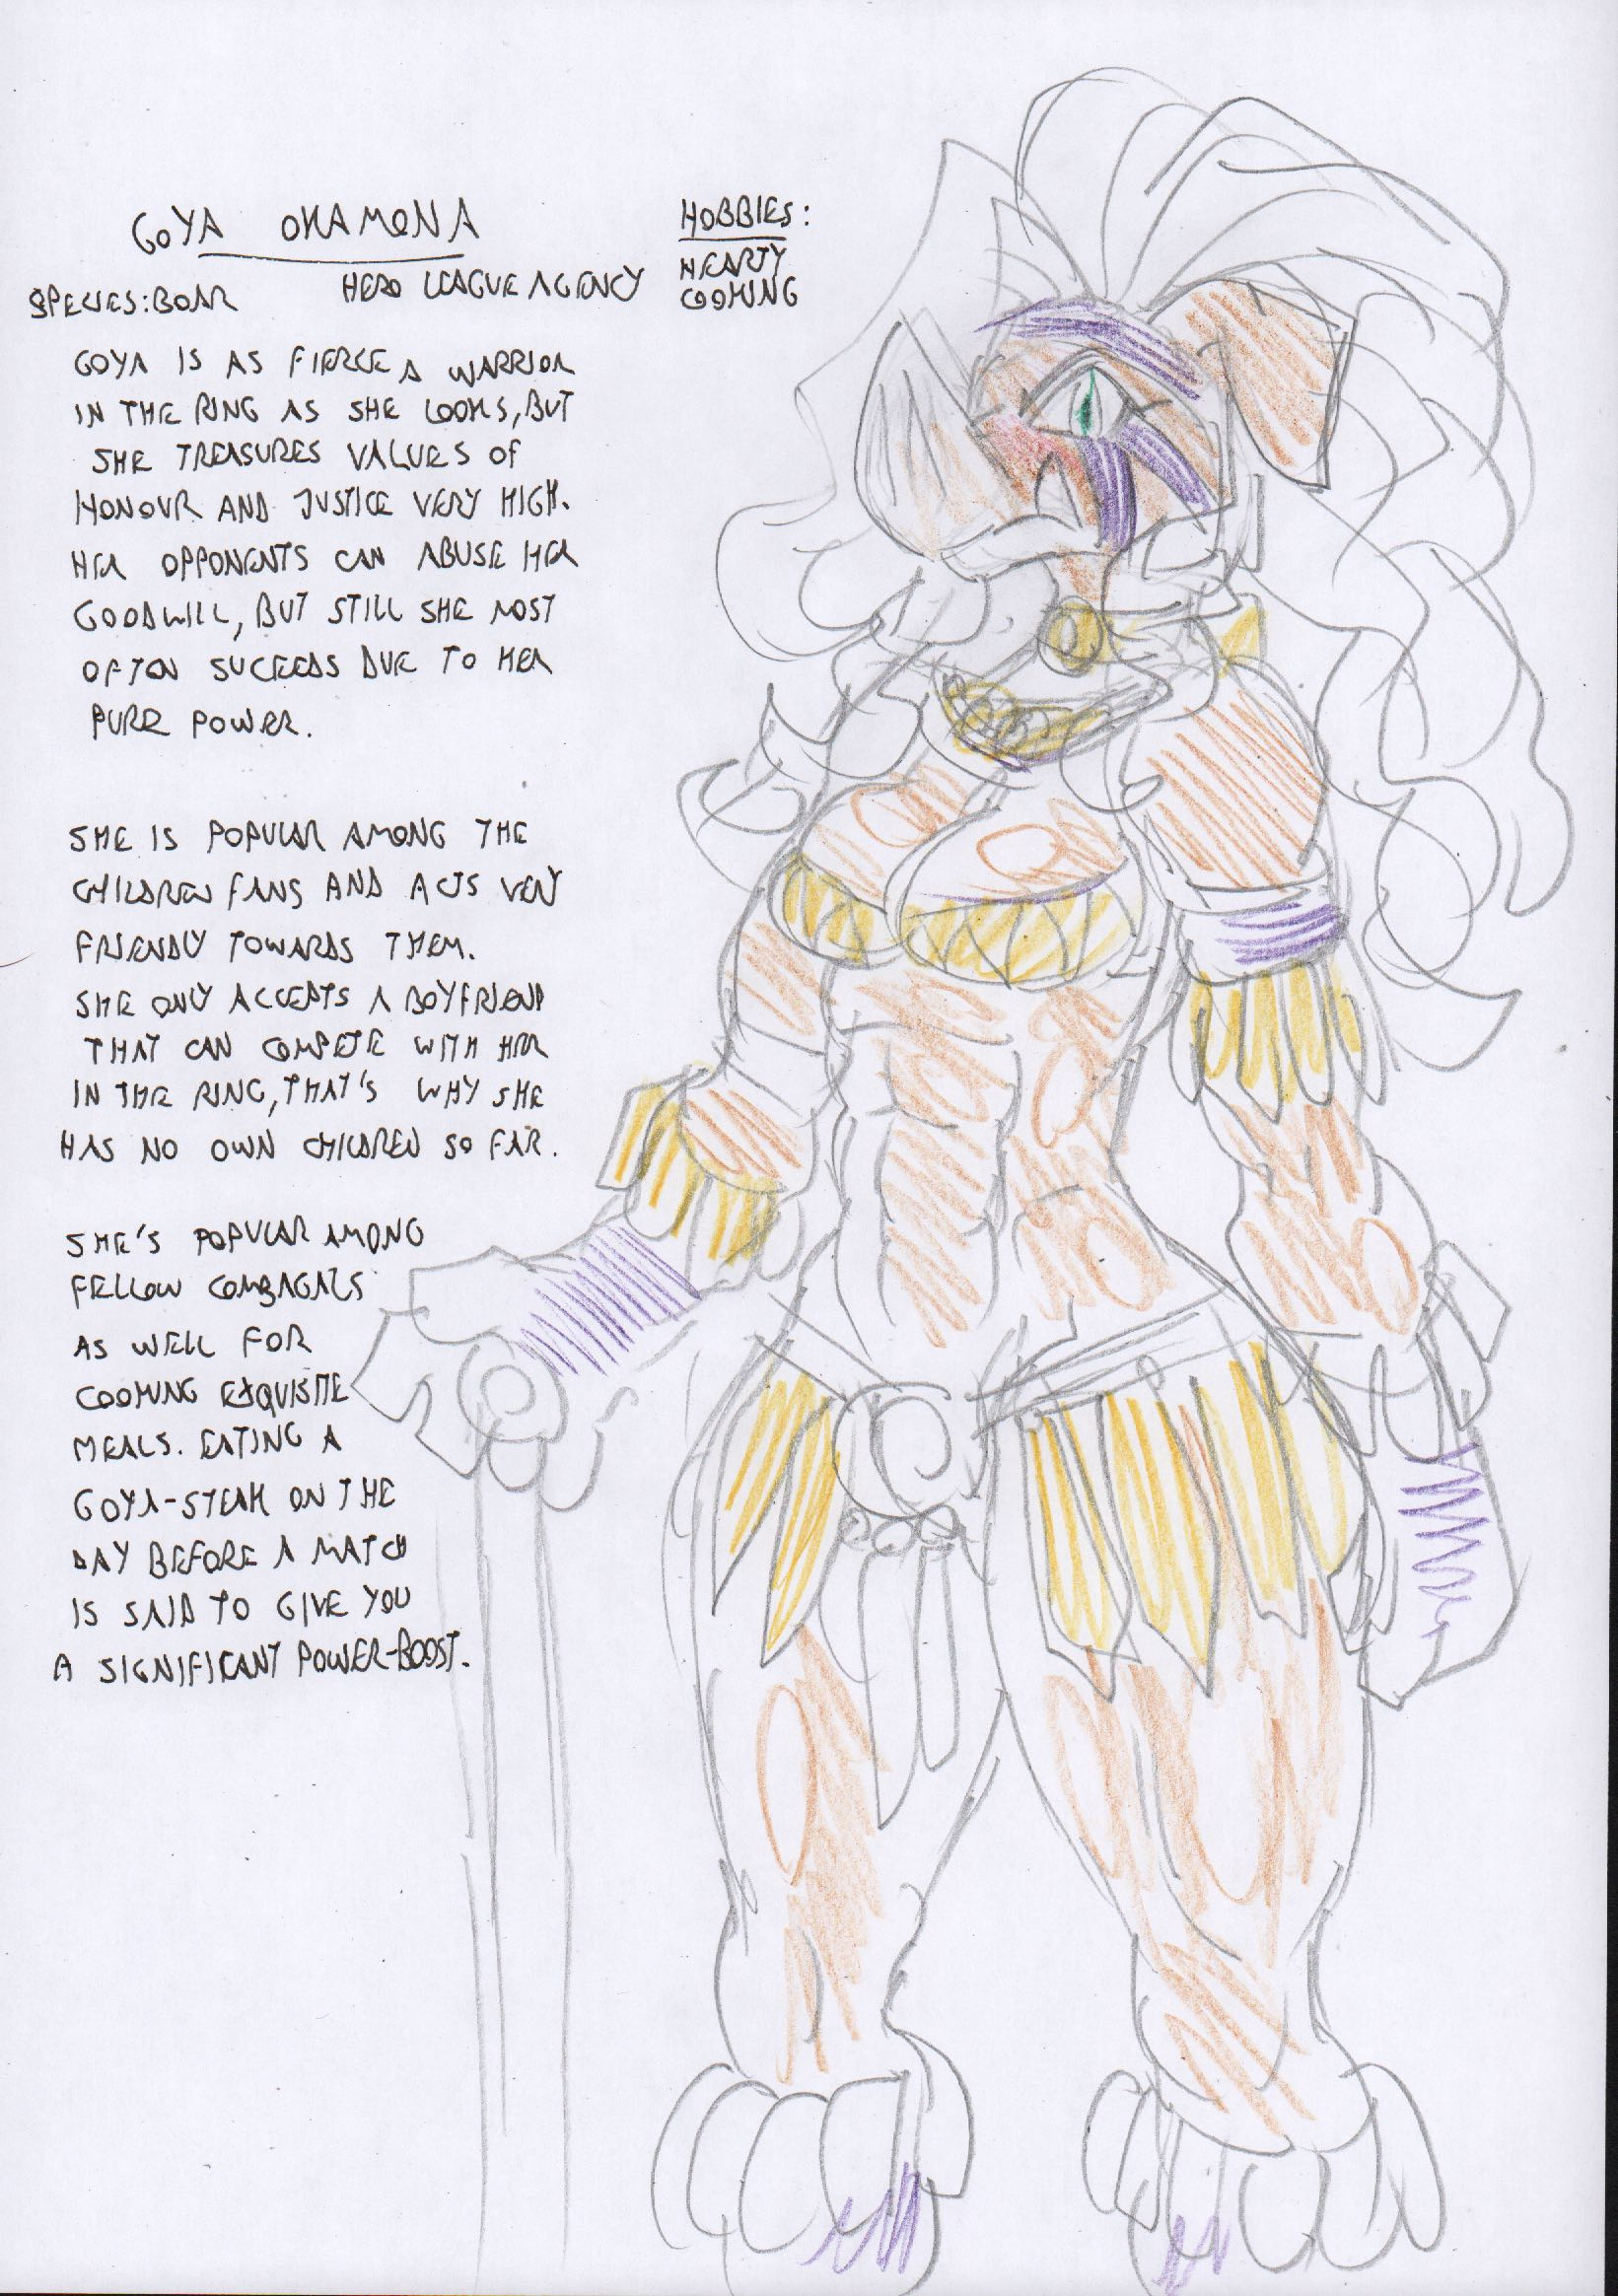 GOYA OKAMONA
SPECIES: BOAR
HERO LEAGUE AGENCY
HOBBIES:
HEARTY
COOKING
GOYA IS AS FIERCE A WARRIOR
IN THE RING AS SHE LOOKS, BUT
SHE TREASURES VALUES OF
HONOUR AND JUSTICE VERY HIGH.
HER OPPONENTS CAN ABUSE HER
GOODWILL, BUT STILL SHE MOST
OFTEN SUCEEDS DUE TO HER
PURE POWER.
SHE IS POPULAR AMONG THE
CHILDREN FANS AND ACTS VERY
FRIENDLY TOWARDS THEM.
SHE ONLY ACCEPTS A BOYFRIEND
THAT CAN COMPETE WITH HER
IN THE RING, THAT'S WHY SHE
HAS NO OWN CHILDREN SO FAR.
SHE'S POPULAR AMONG
FELLOW
AS WELL FOR
COOKING EXQUISITE
MEALS. EATING A
GOYA-STEAK ON THE
DAY BEFORE A MATCH
IS SAID TO GIVE YOU
A SIGNIFICANT POWER-BOOST.